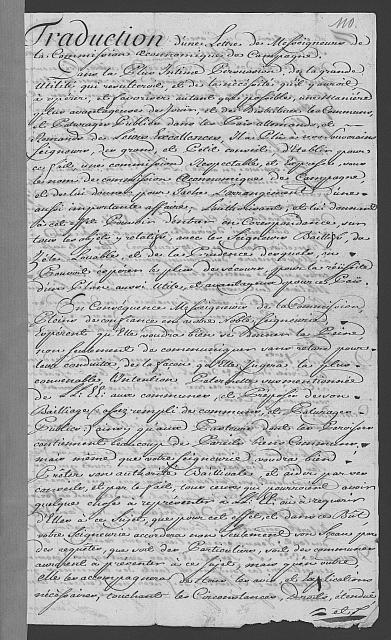 110.
Traduction d'une Lettre de Messeigneurs de
la Commission Œconomique de Campagne.
Dans la Plus Intime Persuasion, de la grande
Utilité qui resulteroit, et de la nécéssité qu'il y auroit
à opérer, et favoriser autant que possible, une manière
plus avantageuse de jouir, et d'exploiter les Communs
et Paturages Publics dans le Pais allemand, et
Romand de Leurs Excellences, Il a Plû à nos
Seigneurs, des grand, et Petit Conseil d'Etablir pour
cet effet, une commission Respectable, et Exposée, sous
le nom de commission Œconomique de Campagne
et de lui donner pour Taches L'arrangement d'une
aussi importante affaire, en lui donnant
à cet effet Pouvoir d'entrer en Correspondance sur
tous les objets y relatifs, avec les Seigneurs Baillifs, du
Zèle louable, et de la Prudence desquels, on
Trouvera espérons le plus de secours pour la réussite
d'un Plan aussi Utile, et avantageux pour le Païs.
En Conséquence Messeigneurs de la Commission,
Pleins de confiance en votre Noble Seigneurie
Espèrent qu'Elle voudra bien se Donner la Peine
non seulement de communiquer sans retard pour
leur conduite, de la façon qu'Elle jugera la plus
convenable, l'Intention Paternelle susmentionnée
de L. EE. aux communes, et Préposés de son
Bailliage, assez rempli de communs, et Paturages
Publics, ainsi qu'aux Pasteurs dont les Paroisses
contiennent beaucoup de Pareils biens Communs,
mais même que votre seigneurie voudra bien
Prêter son authorité Baillivale, et aider par ses
conseils, et par le fait, tous ceux qui pourroient avoir
quelque chose à représenter à L. EE. ou à requérir
d'Elles à ce Sujet, que pour cet effet, et dans ce But
votre Seigneurie accordera non seulement son Sceau pour
des requêtes, que soit des Particuliers, soit des communes
auroient à présenter à ce sujet, mais qu'en outre
Elle les accompagnera de tous les avis, et Explications
nécessaires, touchant les Circonstances, détails, étendue
et. f.